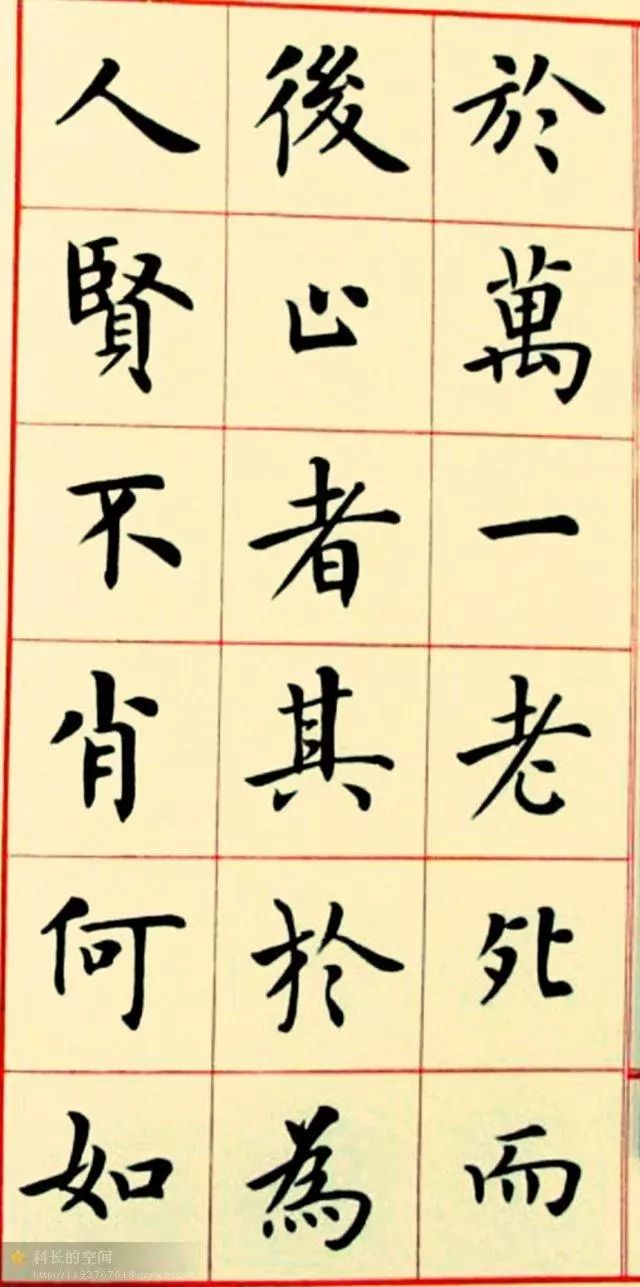 於萬一老死而
後止者其於為
人賢不肖何如
科长的空间
http://1193767618.qzone.qq.com